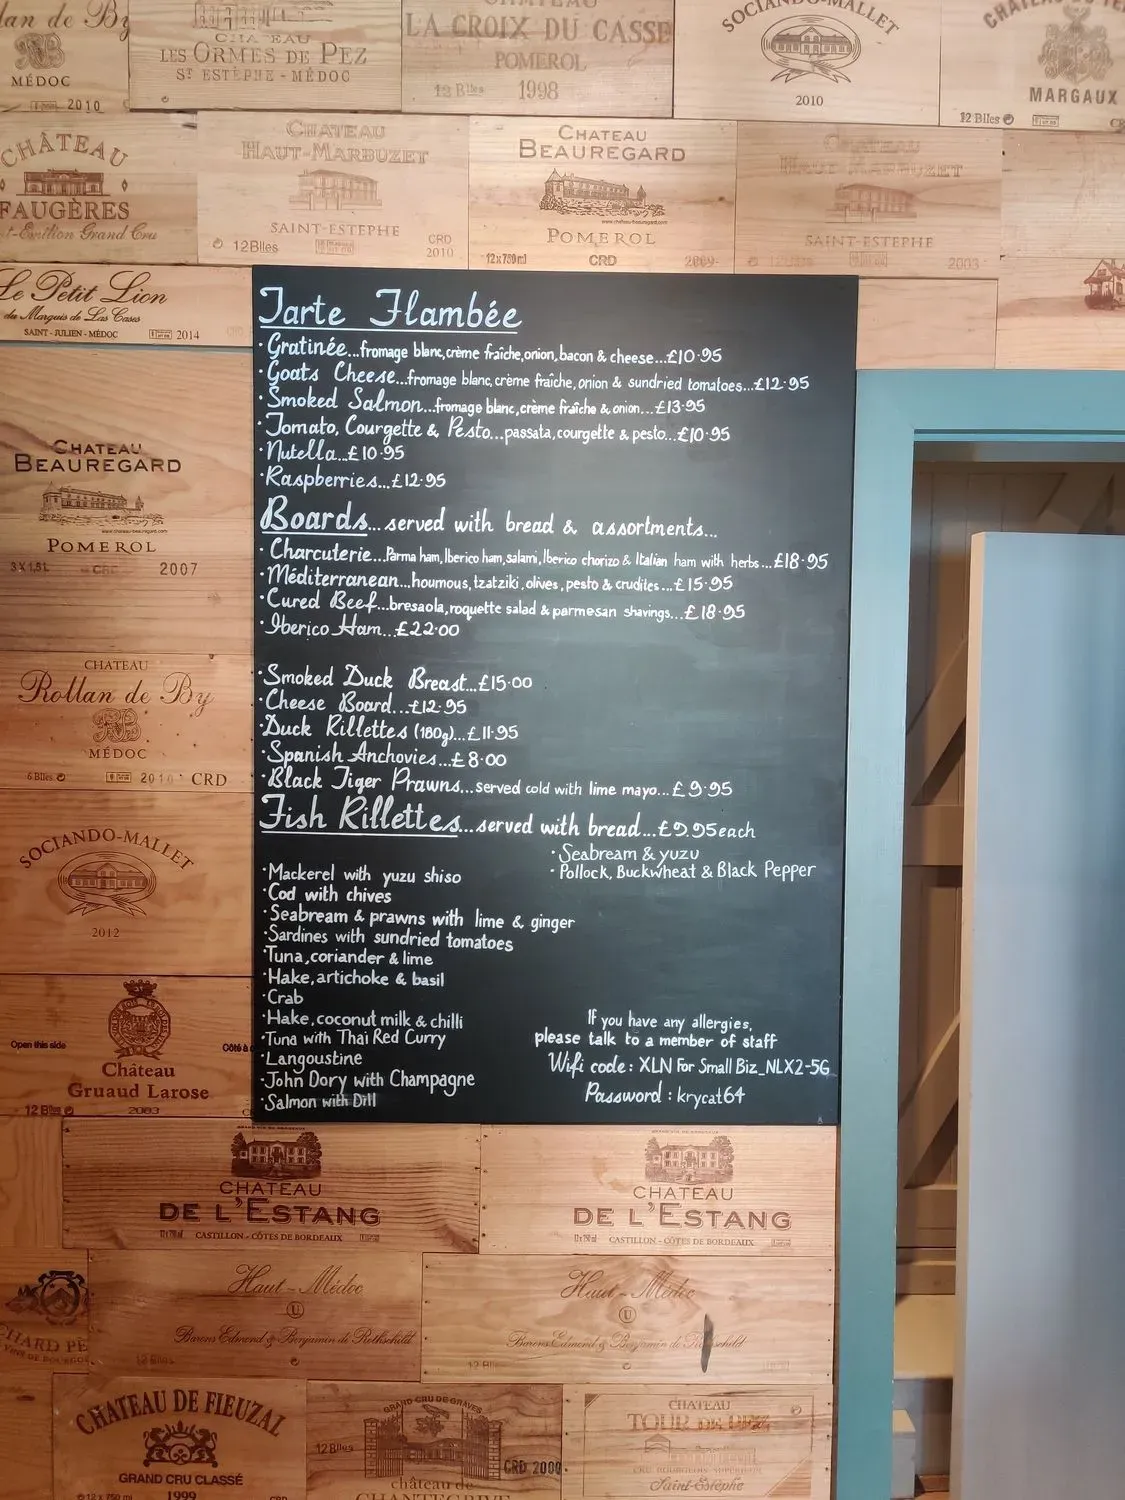 lan de By
MÉDOC
2010
CHATEAU
LES ORMES DE PEZ
ST ESTÈPHE - MÉDOC
CHATEAU
LA CROIX DU CASSE
POMEROL
12 Blles 1998
SOCIANDO-MALLET
2010
MARGAUX
12 Blles
CHÂTEAU
FAUGÈRES
t-Emilion Grand Cru
CHATEAU
HAUT-MARBUZET
SAINT-ESTEPHE
12Blles
CRD
2010
CHATEAU
BEAUREGARD
www.chateau-beauregard.com
POMEROL
12x750ml CRD 2009
CHATEAU
HAUT-MARBUZET
SAINT-ESTEPHE
2003
Le Petit Lion
du Marquis de Las Cases
SAINT-JULIEN-MÉDOC 2014
Tarte Flambée
·Gratinée...fromage blanc,crème fraîche,onion,bacon & cheese...£10·95
·Goats Cheese...fromage blanc,crème fraîche,onion & sundried tomatoes...£12·95
·Smoked Salmon...fromage blanc,crème fraîche & onion...£13·95
·Tomato, Courgette & Pesto...passata,courgette & pesto...£10·95
·Nutella...£10·95
·Raspberries...£12·95
Boards...served with bread & assortments...
·Charcuterie...Parma ham,Iberico ham,salami,Iberico chorizo & Italian ham with herbs...£18·95
·Méditerranean...houmous,tzatziki,olives,pesto & crudites...£15·95
·Cured Beef...bresaola,roquette salad & parmesan shavings...£18·95
·Iberico Ham...£22·00
·Smoked Duck Breast...£15·00
·Cheese Board...£12·95
·Duck Rillettes (180g)...£11·95
·Spanish Anchovies...£8·00
·Black Tiger Prawns...served cold with lime mayo...£9·95
Fish Rillettes...served with bread...£9.95each
·Seabream & yuzu
·Pollock, Buckwheat & Black Pepper
·Mackerel with yuzu shiso
·Cod with chives
·Seabream & prawns with lime & ginger
·Sardines with sundried tomatoes
·Tuna,coriander & lime
·Hake,artichoke & basil
·Crab
·Hake,coconut milk & chilli
·Tuna with Thai Red Curry
·Langoustine
·John Dory with Champagne
·Salmon with Dill
If you have any allergies,
please talk to a member of staff
Wifi code: XLN For Small Biz_NLX2-5G
Password : krycat64
CHATEAU
BEAUREGARD
www.chateau-beauregard.com
POMEROL
3X1,5L CRD 2007
CHATEAU
Rollan de By
MÉDOC
6 Blles 2010 CRD
SOCIANDO-MALLET
2012
Open this side
Côté à o
Château
Gruaud Larose
12 Blles 2003
CHATEAU
DE L'ESTANG
CASTILLON - CÔTES DE BORDEAUX
CHATEAU
DE L'ESTANG
CASTILLON - CÔTES DE BORDEAUX
Haut-Médoc
U
Barons Edmond & Benjamin de Rothschild
Haut-Médoc
U
Barons Edmond & Benjamin de Rothschild
CHATEAU DE FIEUZAL
GRAND CRU CLASSÉ
12 x 750 ml 1999
GRAND CRU DE GRAVES
12 Blles
CRD 2000
château de
CHANTEGRIVE
CHATEAU
TOUR DE PEZ
CRU BOURGEOIS SUPERIEUR
Saint-Estèphe